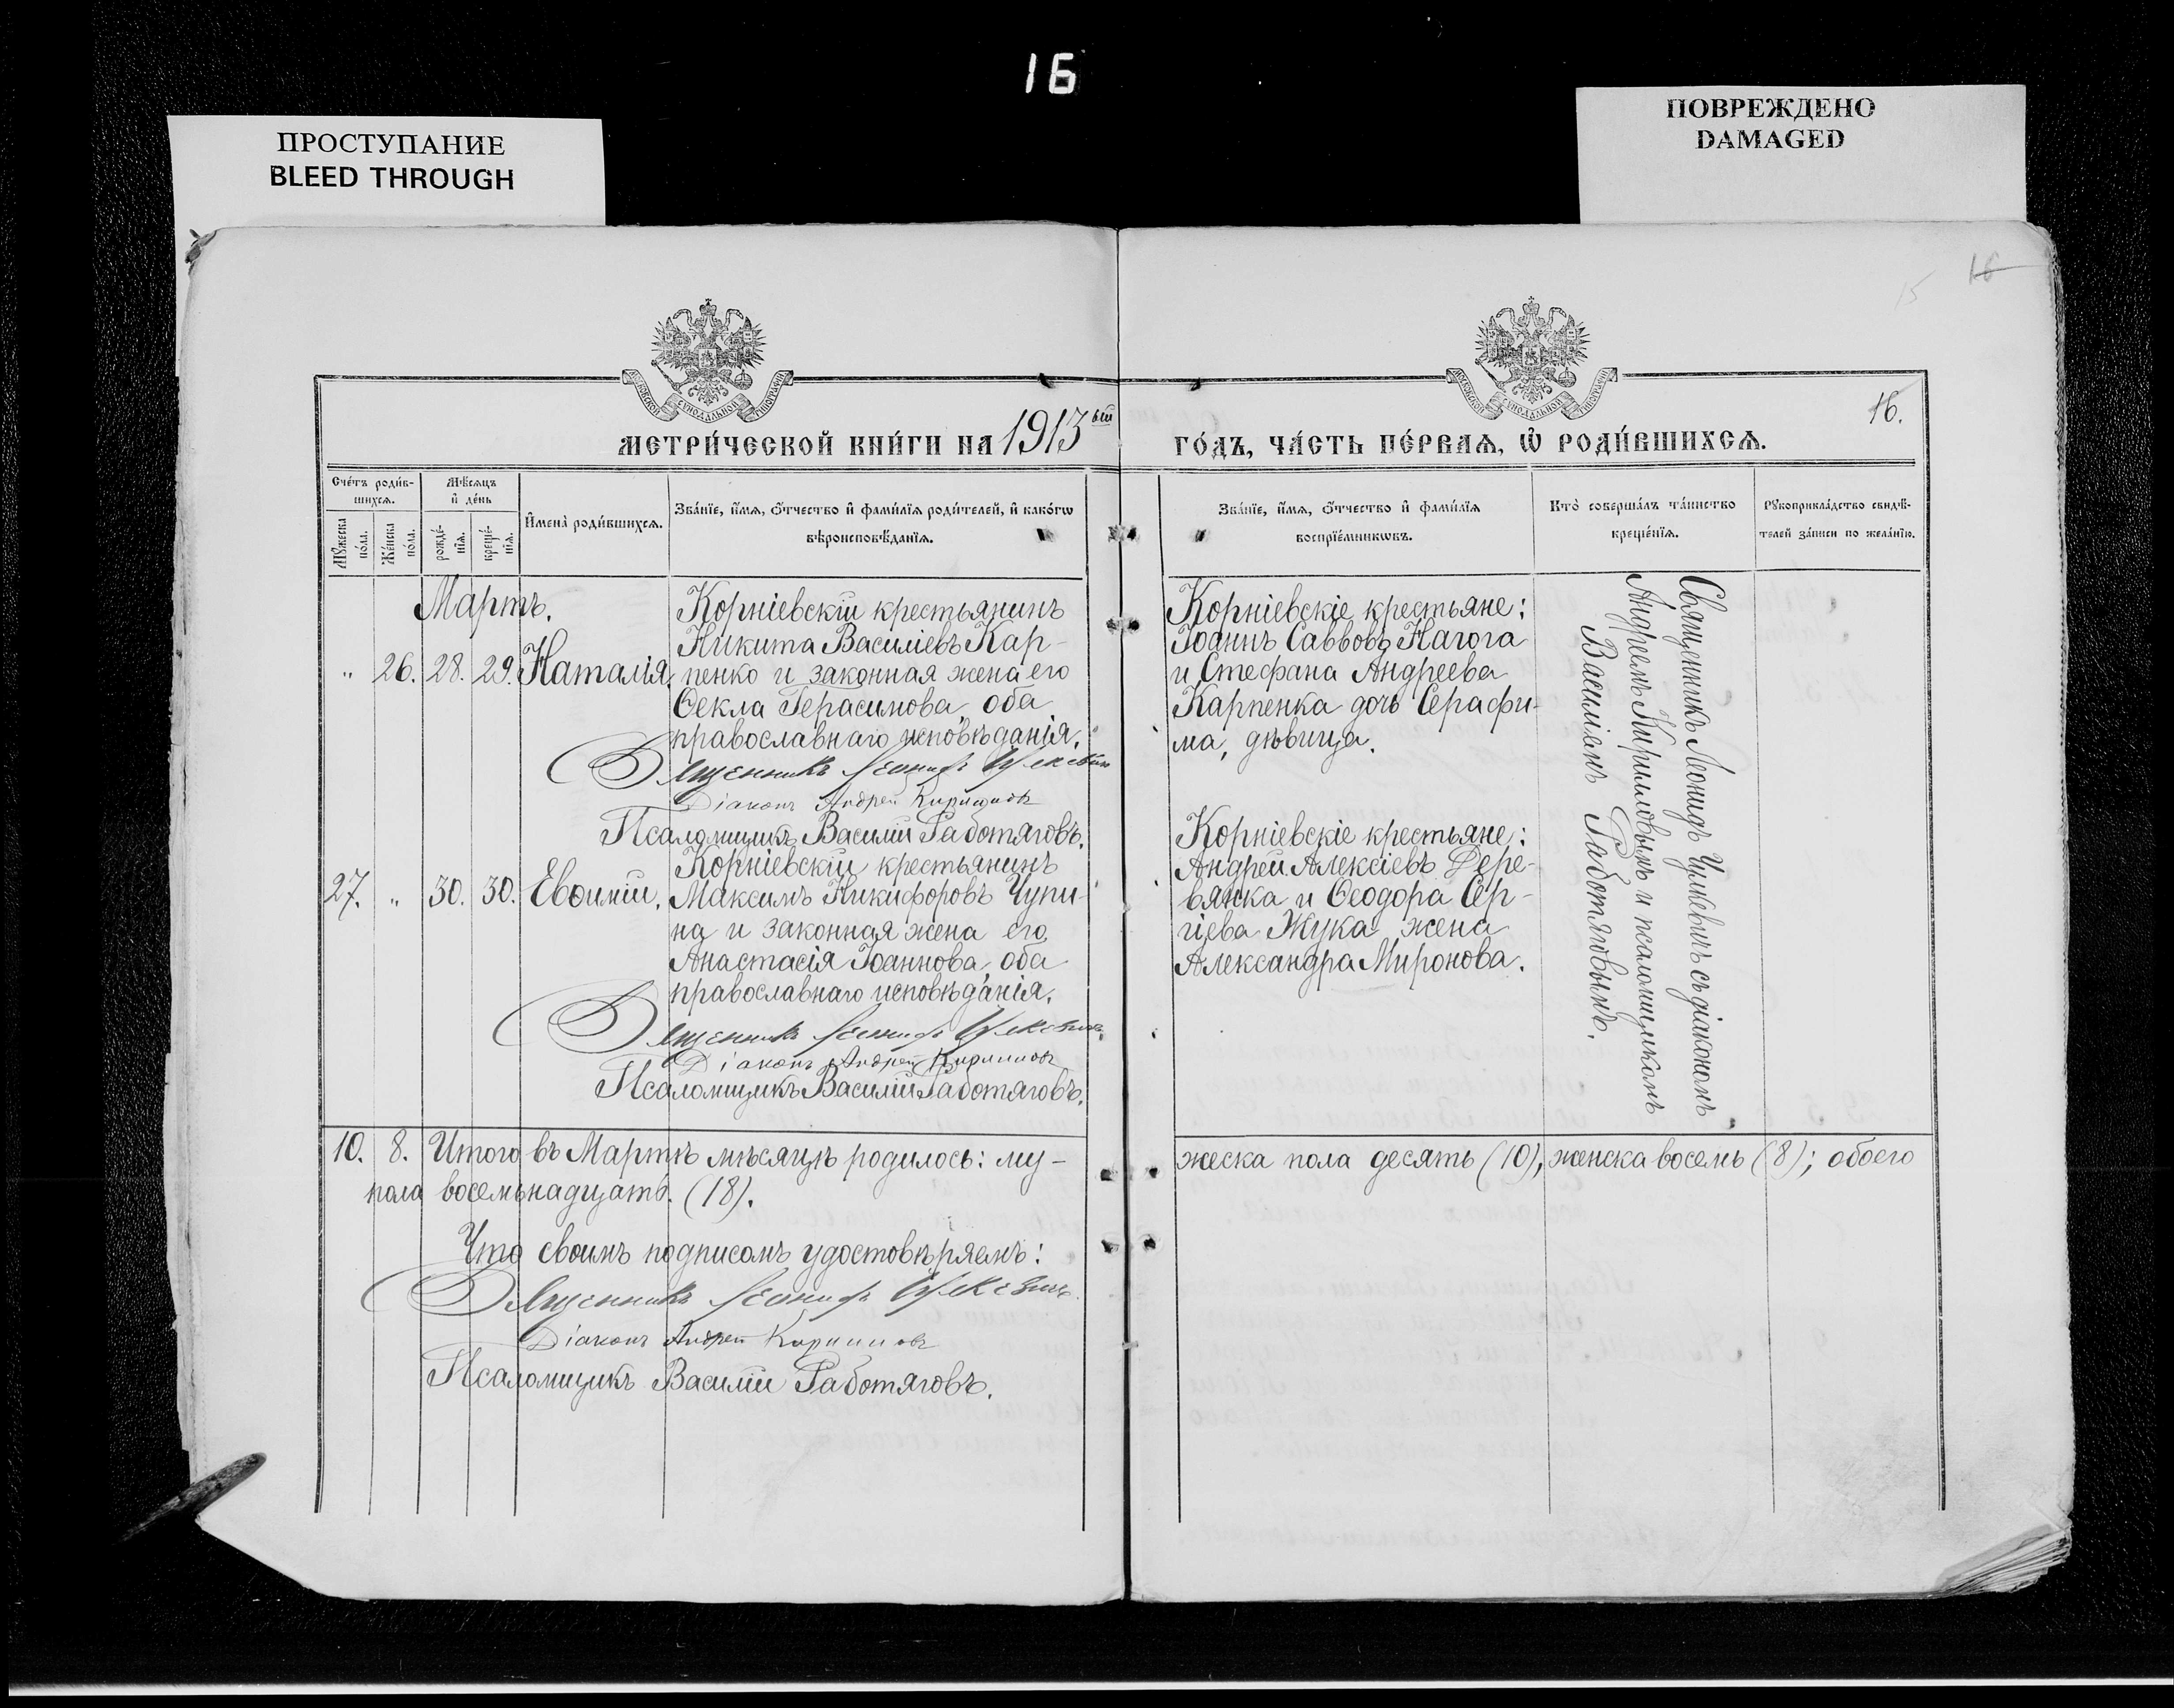 16
ПРОСТУПАНИЕ
BLEED THROUGH
ПОВРЕЖДЕНО
DAMAGED
16
15
16.
МЕТРИ́ЧЕСКОЙ КНИ́ГИ НА 1913ый
ГО́ДЪ, ЧА́СТЬ ПЕ́РВАѦ, Ѽ РОДИ́ВШИХСѦ.
Сче́тъ роди́в-
шихсѧ.
Мѣ́сѧцъ
и҆ де́нь
Мꙋ́жеска
по́ла.
Же́нска
по́ла.
рожде́-
нїѧ.
креще́-
нїѧ.
И҆мена̀ роди́вшихсѧ.
Зва́нїе, и҆́мѧ, ѻ҆́тчество и҆ фами́лїѧ роди́телей, и҆ како́гѡ
вѣроисповѣ́данїѧ.
Зва́нїе, и҆́мѧ, ѻ҆́тчество и҆ фами́лїѧ
воспрїе́мникѡвъ.
Кто̀ соверша́лъ та́инство
креще́нїѧ.
Рꙋкоприкла́дство свидѣ́-
телей за́писи по жела́нїю.
Мартъ.
„ 26. 28. 29. Наталія,
Корніевскій крестьянинъ
Никита Василіевъ Кар-
пенко и законная жена его
Ѳекла Герасимова, оба
православнаго исповѣданія.
Священникъ Леонидъ
Діаконъ Андрей Кириловъ
Псаломщикъ Василій Работяговъ.
Корніевскіе крестьяне:
Іоаннъ Саввовъ Нагога
и Стефана Андреева
Карпенка дочь Серафи-
ма, дѣвица.
27. „ 30. 30. Евѳимій,
Корніевскій крестьянинъ
Максимъ Никифоровъ Чупи-
на и законная жена его
Анастасія Іоаннова, оба
православнаго исповѣданія.
Священникъ Леонидъ
Діаконъ Андрей Кириловъ
Псаломщикъ Василій Работяговъ.
Корніевскіе крестьяне:
Андрей Алексіевъ Дере-
вянка и Ѳеодора Сер-
гіева Жука жена
Александра Миронова.
Священникъ Леонидъ съ діакономъ
Андреемъ Кириловымъ и псаломщикомъ
Василіемъ Работяговымъ.
10. 8. Итого въ Мартѣ мѣсяцѣ родилось: му-
жеска пола десять (10), женска восемь (8); обоего
пола восемьнадцать. (18).
Что своимъ подписомъ удостовѣряемъ:
Священникъ Леонидъ
Діаконъ Андрей Кириловъ
Псаломщикъ Василій Работяговъ.